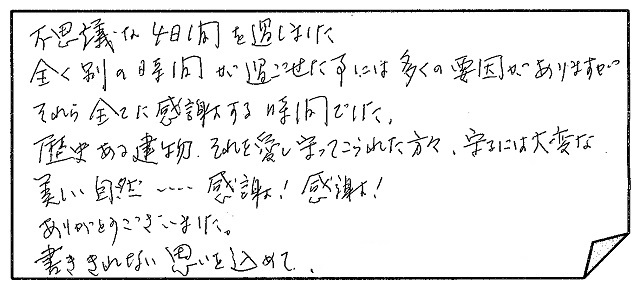 不思議な4日間を過しました
全く別の時間が過ごせた事には多くの要因がありますが
それら全てに感謝する時間でした。
歴史ある建物、それを愛し守ってこられた方々、守るには大変な
美しい自然……感謝！感謝！
ありがとうございました。
書ききれない思いを込めて、